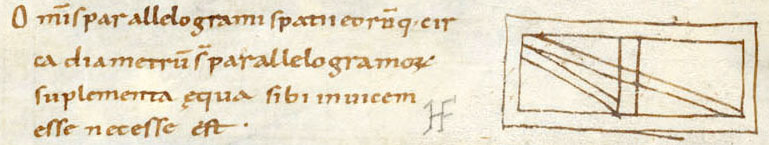 Om̄is parallelogrami spatii eorūq· cir
ca diametrū s̄ parallelogramoꝝ
suplementa ęqua sibi inuicem
esse necesse ēst ·
HF